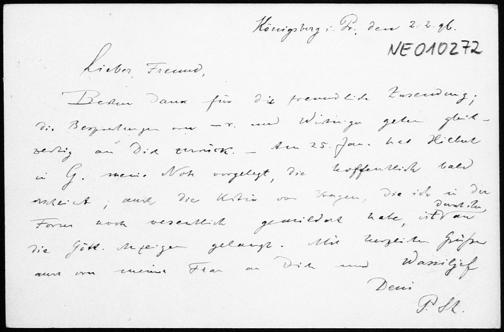 Königsberg i. Pr. den 2.2.96.
NE010272
Lieber Freund,
Besten Dank für die freundliche Zusendung;
die Besprechungen von und gehen gleich-
zeitig an Dich zurück. – Am 25. Jan. hat Hilbert
in G. meine Note vorgelegt, die hoffentlich bald
erscheint; auch die Kritik von, die ich in der
Form noch wesentlich gemildert habe, ist an
die Gött. Anzeigen gelangt. Mit herzlichen Grüßen
auch von meiner Frau an Dich und
Dein
P. St.